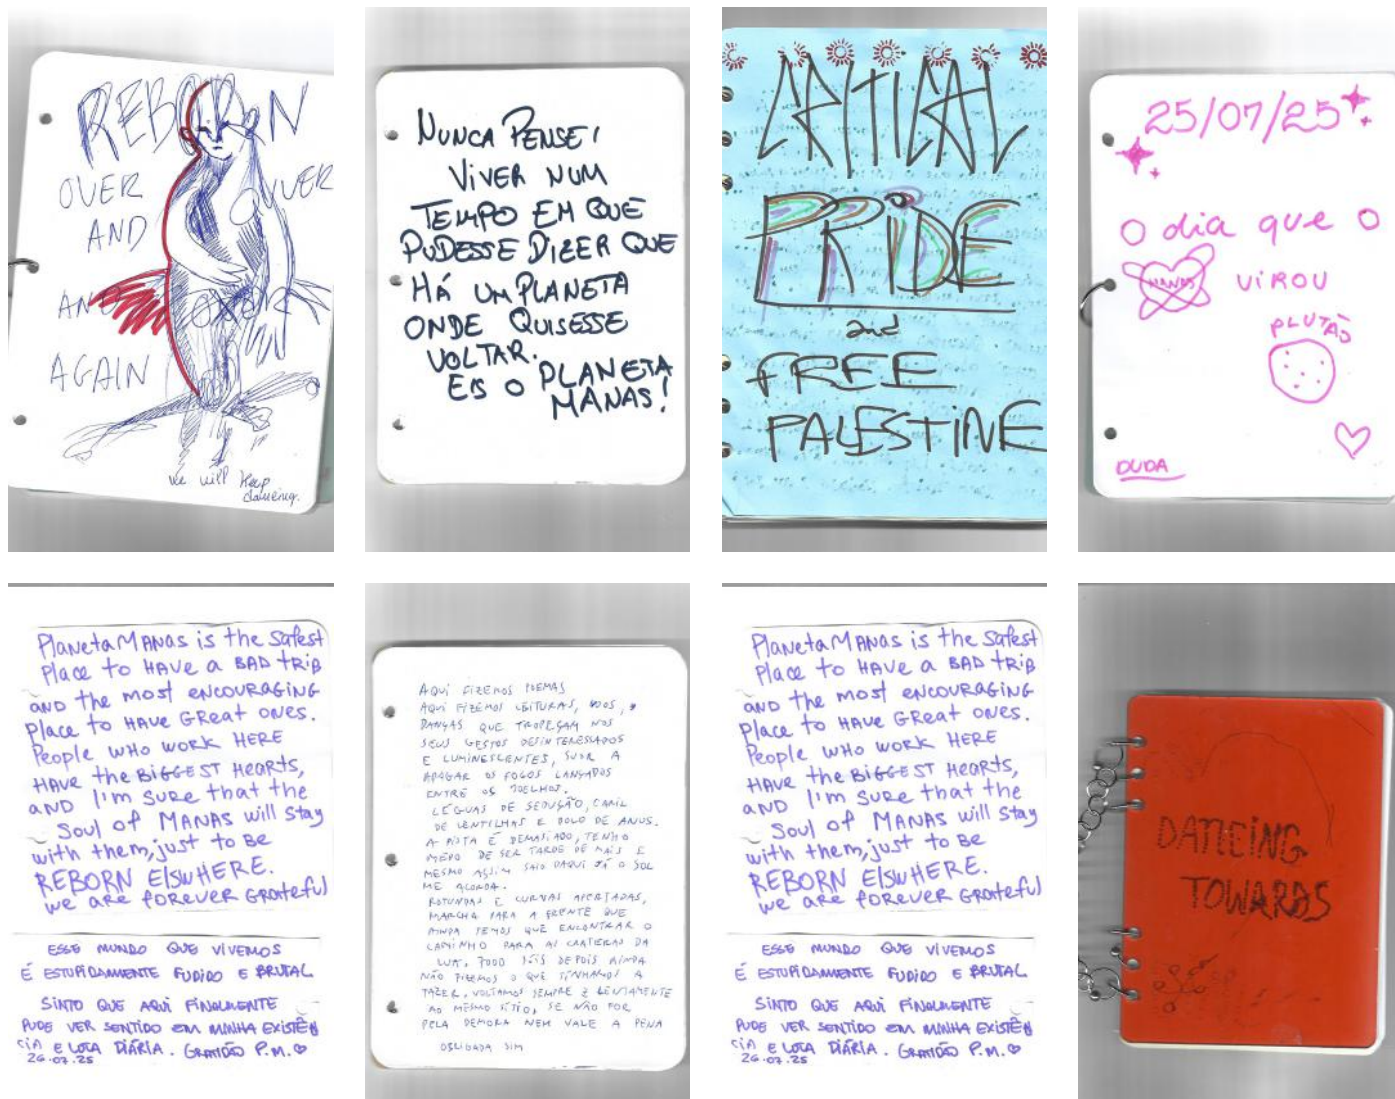 REBORN
OVER AND OVER
AND OVER
AGAIN
we will keep
dancing.
NUNCA PENSEI
VIVER NUM
TEMPO EM QUE
PUDESSE DIZER QUE
HÁ UM PLANETA
ONDE QUISESSE
VOLTAR.
EIS O PLANETA
MANAS!
CRITICAL
PRIDE
and
FREE
PALESTINE
25/07/25
O dia que o
MANAS VIROU
PLUTÃO
DUDA
PlanetaMANAS is the Safest
Place to HAVE a BAD tRIP
AND the most ENCOURAGING
Place to HAVE GReat ONES.
People WHO WORK HERE
HAVE the BIGGEST HeaRts,
aND I'm SURe that the
Soul of MANAS will Stay
with them, just to Be
REBORN ElSWHERE.
we are FOREVER GRateful
ESSE MUNDO QUE VIVEMOS
É ESTUPIDAMENTE FUDIDO E BRUTAL
SINTO QUE AQUI FINALMENTE
PUDE VER SENTIDO EM MINHA EXISTÊN
CIA E LUTA DIÁRIA. GRATIDÃO P.M. ♡
26.07.25
AQUI FIZEMOS POEMAS
AQUI FIZEMOS LEITURAS,
DANÇAS QUE TROPEÇAM NOS
SEUS GESTOS DESINTERESSADOS
E LUMINESCENTES, SUOR A
APAGAR OS FOGOS LANÇADOS
ENTRE OS JOELHOS.
LÉGUAS DE SEDUÇÃO, CARIL
DE LENTILHAS E BOLO DE ANUS.
A PISTA É DEMASIADO, TENHO
MEDO DE SER TARDE DE MAIS E
MESMO ASSIM SAIO DAQUI JÁ O SOL
ME ACORDA.
ROTUNDAS E CURVAS APERTADAS,
MARCHA PARA A FRENTE QUE
AINDA TEMOS QUE ENCONTRAR O
CAMINHO PARA AS CRATERAS DA
LUA. DEPOIS AINDA
NÃO FIZEMOS O QUE TÍNHAMOS A
FAZER, VOLTAMOS SEMPRE E LENTAMENTE
AO MESMO SÍTIO, SE NÃO FOR
PELA DEMORA NEM VALE A PENA
OBRIGADA SIM
PlanetaMANAS is the Safest
Place to HAVE a BAD tRIP
AND the most ENCOURAGING
Place to HAVE GReat ONES.
People WHO WORK HERE
HAVE the BIGGEST HeaRts,
aND I'm SURe that the
Soul of MANAS will Stay
with them, just to Be
REBORN ElSWHERE.
we are FOREVER GRateful
ESSE MUNDO QUE VIVEMOS
É ESTUPIDAMENTE FUDIDO E BRUTAL
SINTO QUE AQUI FINALMENTE
PUDE VER SENTIDO EM MINHA EXISTÊN
CIA E LUTA DIÁRIA. GRATIDÃO P.M. ♡
26.07.25
DANCING
TOWARDS